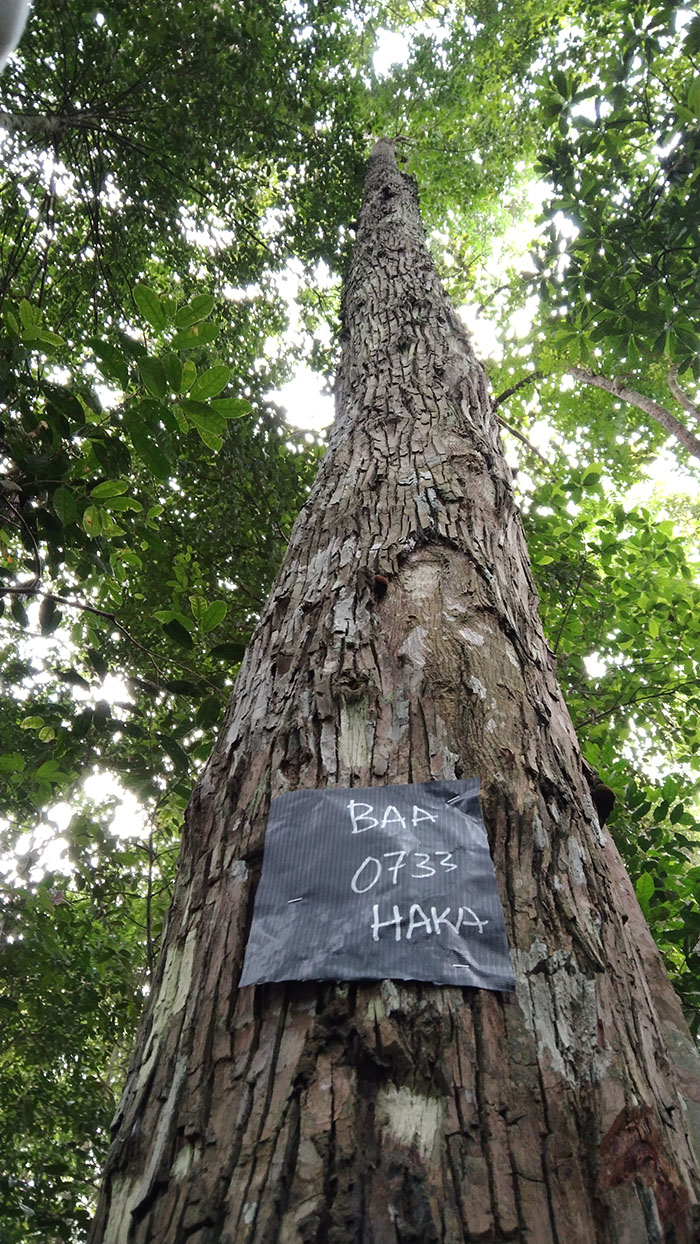 BAA
0733
HAKA